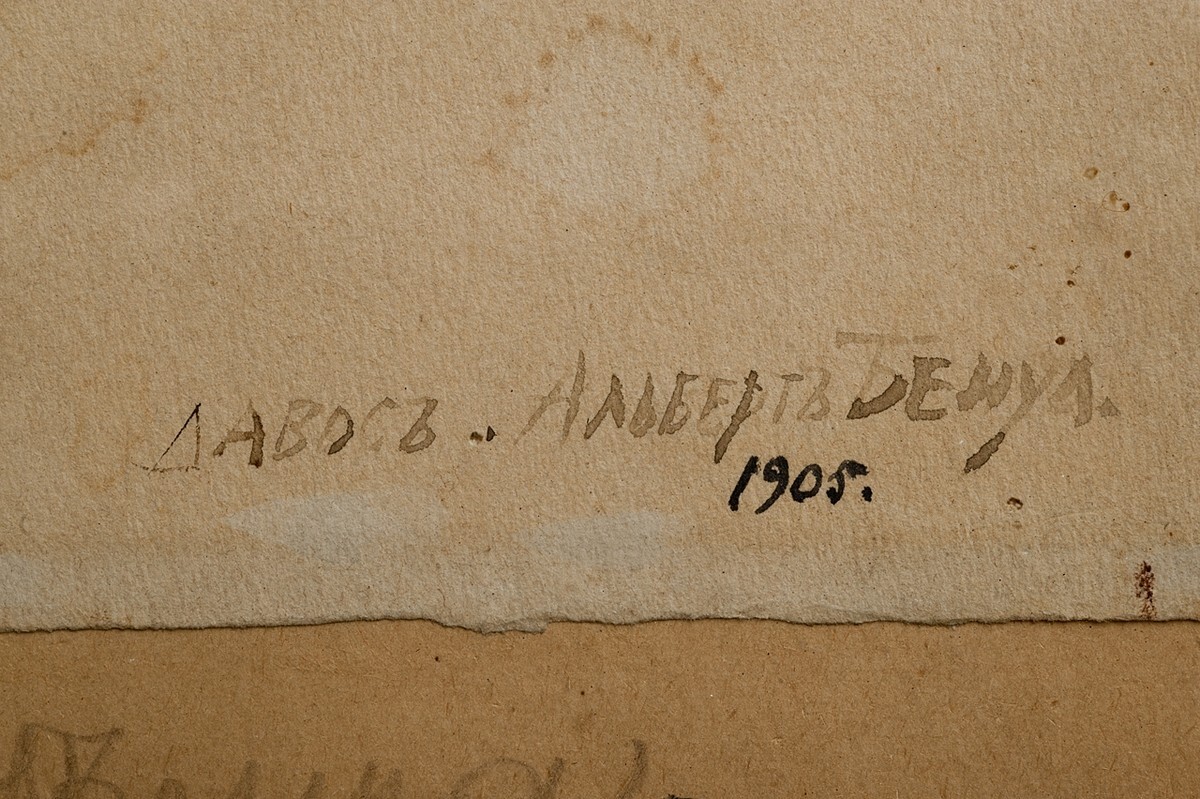 ДАВОСЪ. АЛЬБЕРТЪ БЕНУА.
1905.